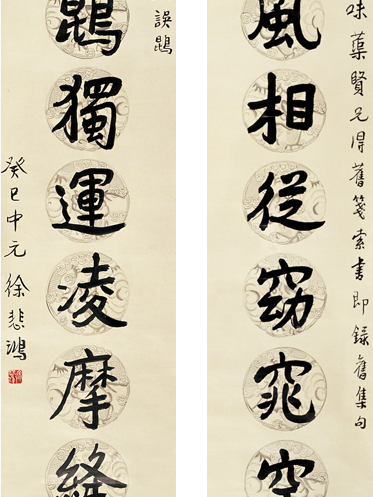 味蕖賢兄得舊箋索書即錄舊集句
風相從窈窕空
鵾獨運凌摩絳
誤鵾
癸巳中元徐悲鴻